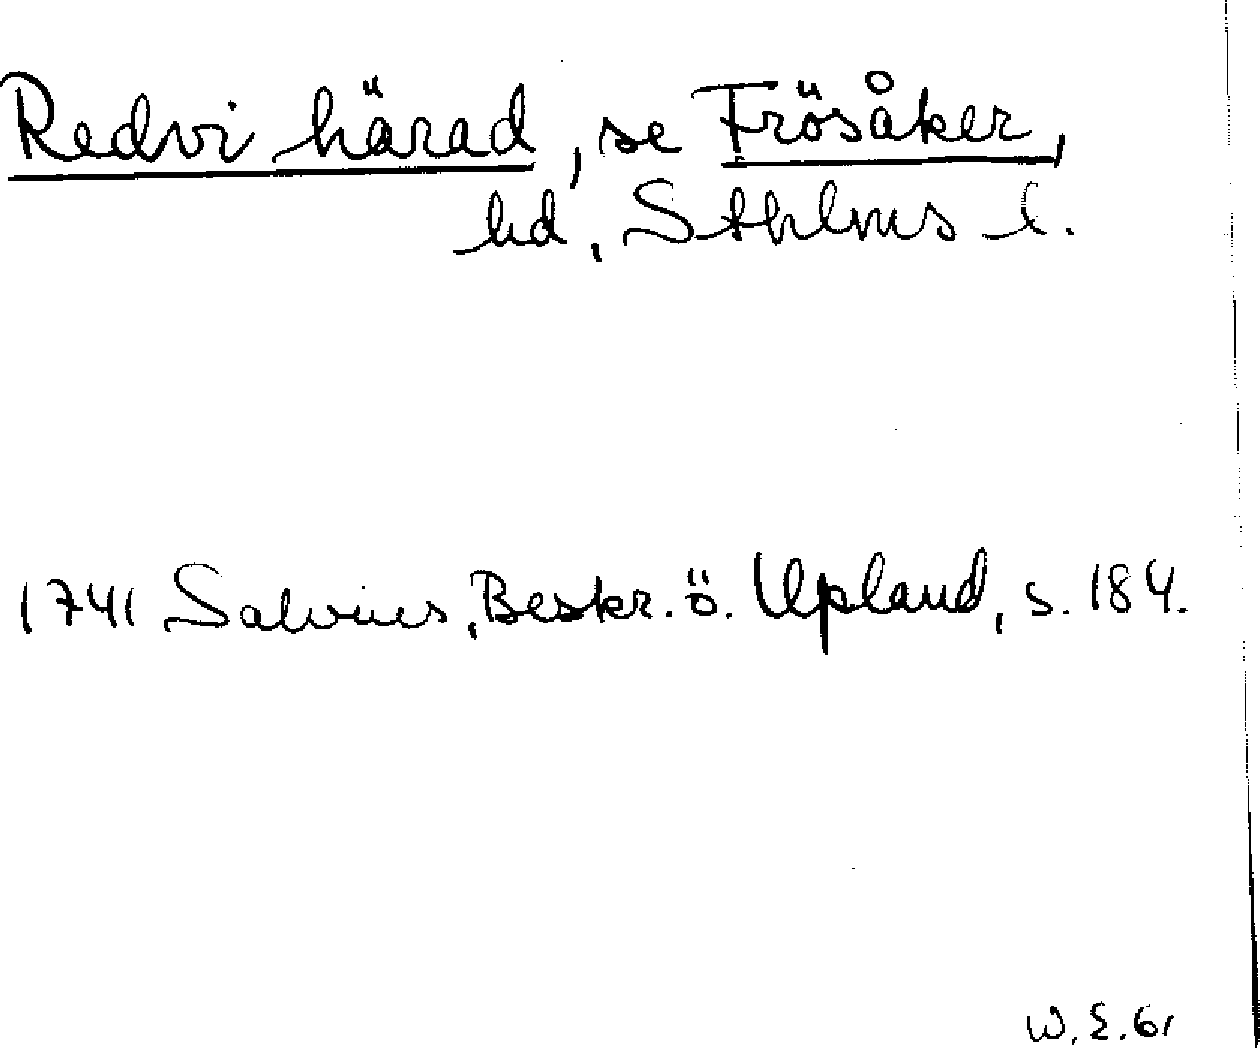 Redvi härad, se Frösåker,
hd, Sthlms l.
1741 Salvius, Beskr. ö. Upland, s. 184.
W. E. 61